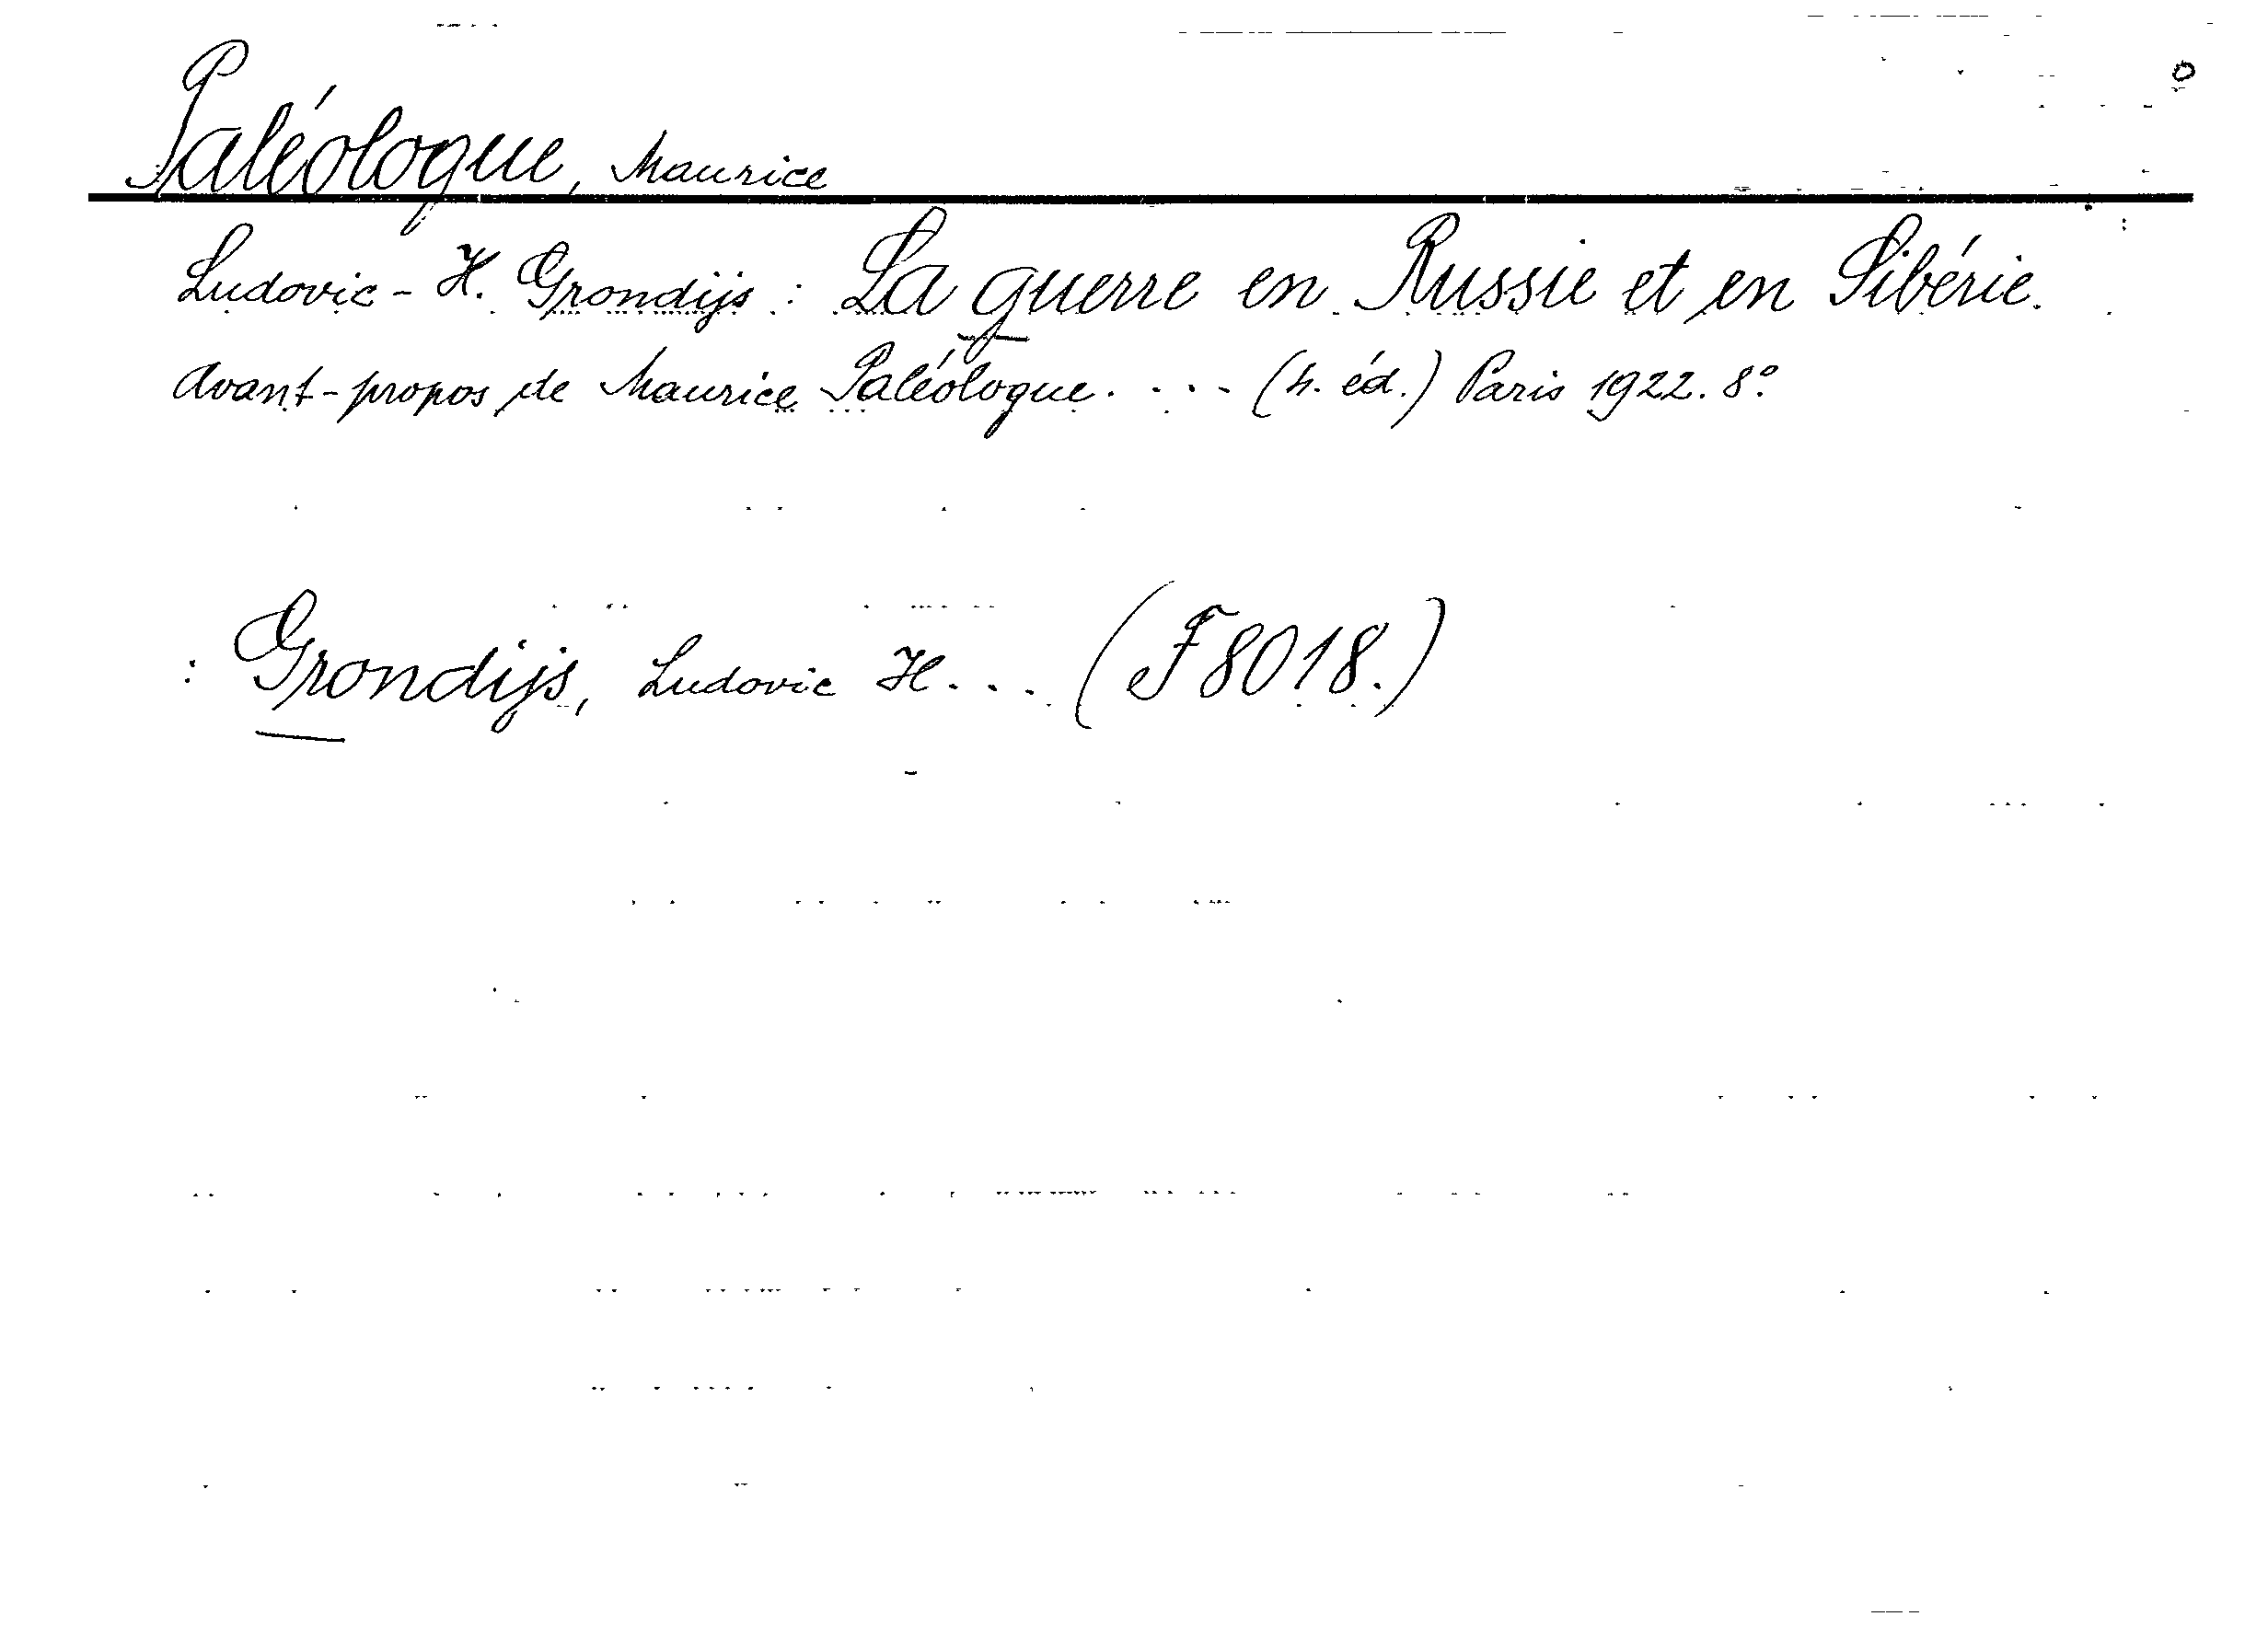 Paléologue, Maurice
Ludovic-H. Grondijs : La guerre en Russie et en Sibérie.
Avant-propos de Maurice Paléologue. ... (4. éd.) Paris 1922. 8°
: Grondijs, Ludovic H... (F8018.)